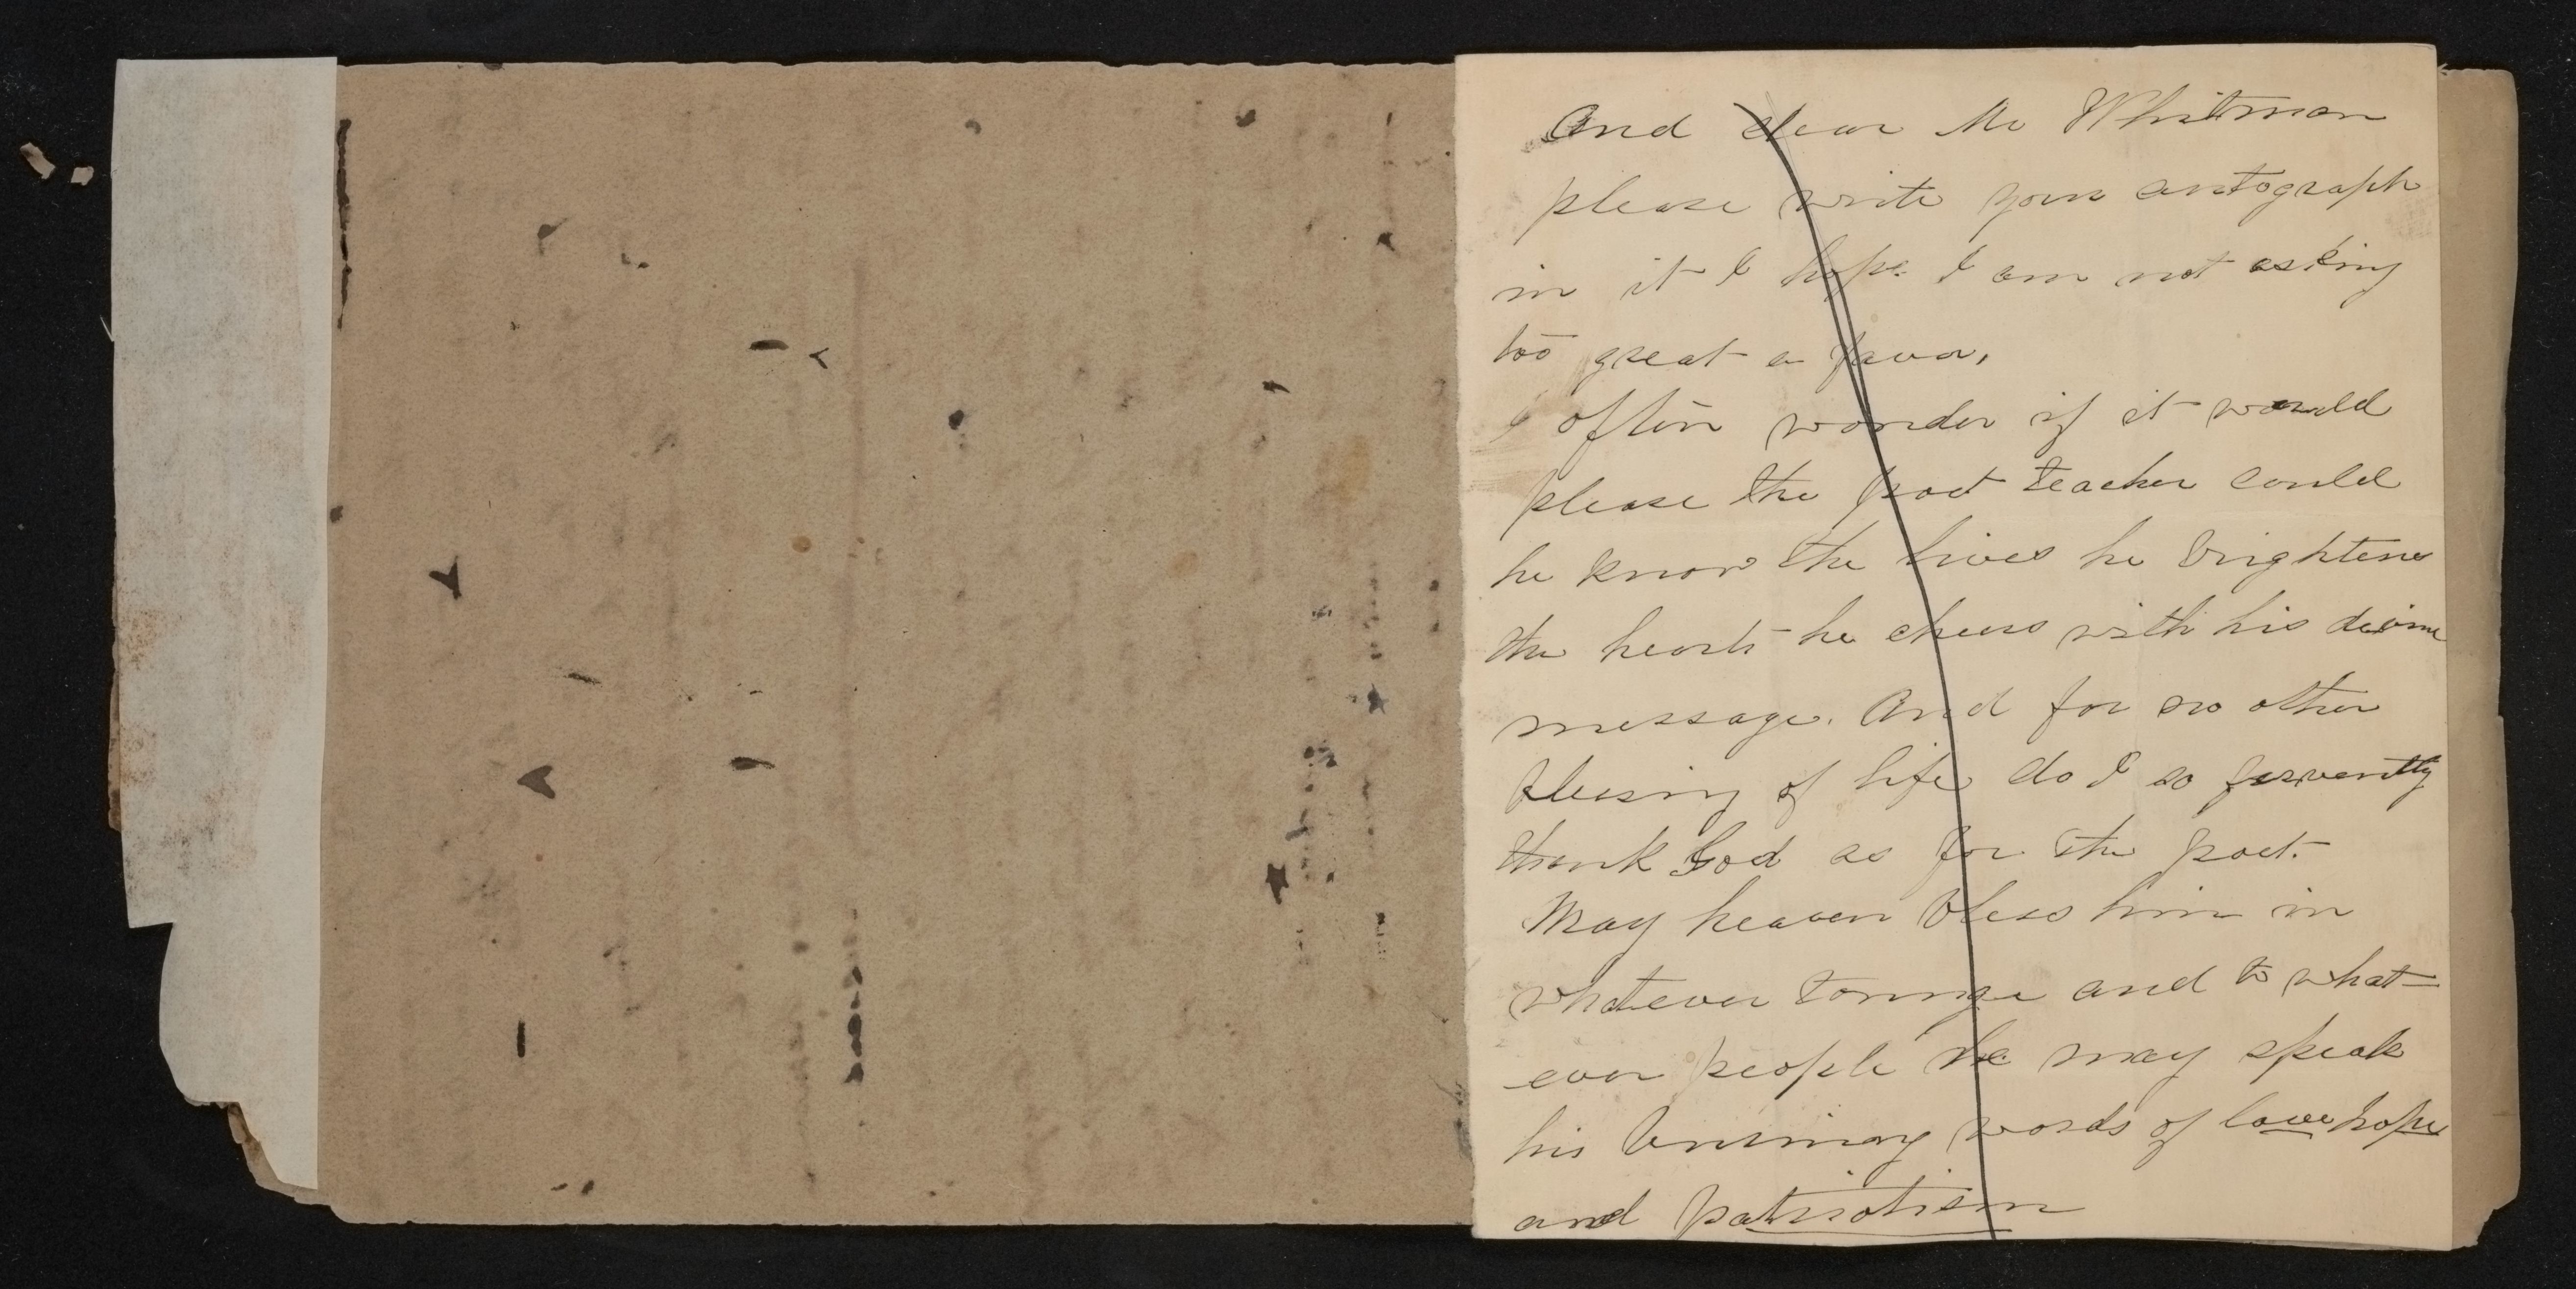 And dear Mr Whitman
please write your autograph
in it I hope I am not asking
too great a favor,
I often wonder if it would
please the poet teacher could
he know the lives he brightens
the hearts he cheers with his divine
message. And for no other
blessing of life do I so fervently
thank God as for the poet.
May heaven bless him in
whatever tounge and to what-
ever people he may speak
his words of love hope
and patriotism